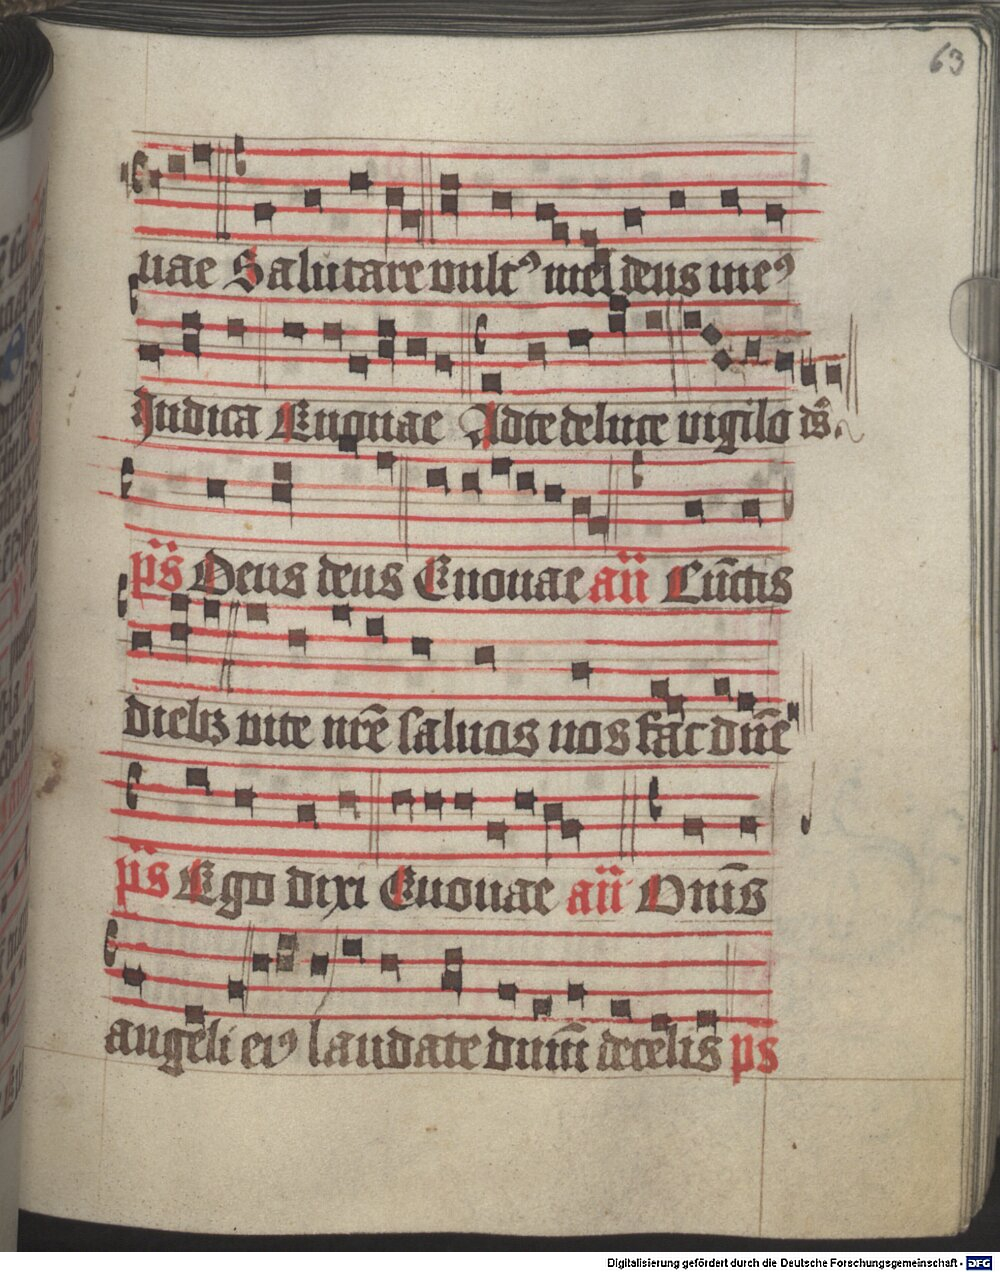 63
uae Salutare vultꝰ mei deus meꝰ
Iudica Euouae Ad te de luce vigilo ds̄.
ps̄ Deus deus Euouae añ Cūctis
diebꝫ vite nr̄e saluos nos fac dn̄e
ps̄ Ego dixi Euouae añ Om̄s
angeli eiꝰ laudate dnm̄ de celis ps
Digitalisierung gefördert durch die Deutsche Forschungsgemeinschaft - DFG